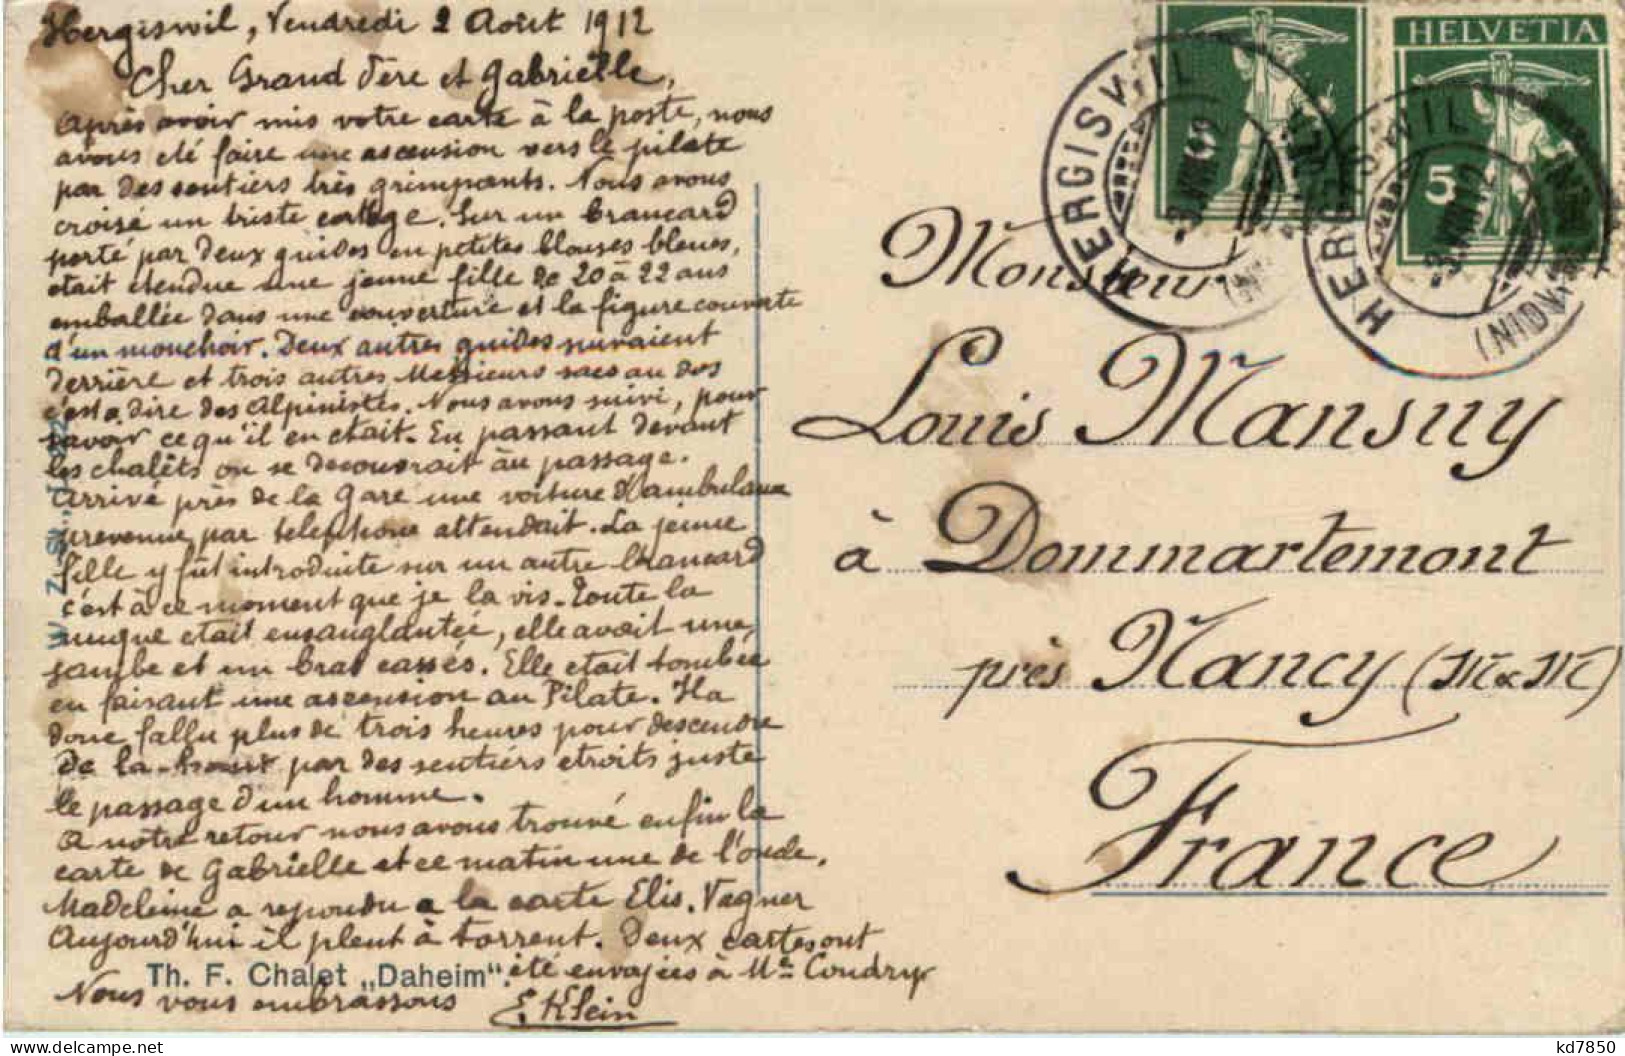 Hergiswil, Vendredi 2 Août 1912
Cher Grand Père et Gabrielle,
Après avoir mis votre carte à la poste, nous
avons été faire une ascension vers le pilate
par des sentiers très grimpants. Nous avons
croisé un triste cortège. Sur un brancard
porté par deux guides en petites blouses bleues,
était étendue une jeune fille de 20 à 22 ans
emballée dans une couverture et la figure couverte
d'un mouchoir. Deux autres guides suivaient
derrière et trois autres Messieurs sacs au dos
c'est a dire des Alpinistes. Nous avons suivi, pour
savoir ce qu'il en était. En passant devant
les chalêts on se découvrait au passage.
Arrivé près de la Gare une voiture d'ambulance
prevenue par telephone attendait. La jeune
fille y fût introduite sur un autre brancard
c'est à ce moment que je la vis. Toute la
nuque etait ensanglantée, elle avait une
jambe et un bras cassés. Elle etait tombée
en faisant une ascension au Pilate. Il a
donc fallu plus de trois heures pour descendre
de la-haut par des sentiers etroits juste
le passage d'un homme.
A notre retour nous avons trouvé enfin la
carte de Gabrielle et ce matin une de l'oncle.
Madeleine a repondu a la carte Elis. Vagner
Aujourd'hui il pleut à torrent. Deux cartes ont
été envoyées à Me Coudry
Nous vous embrassons E. Klein
Th. F. Chalet „Daheim".
HELVETIA
5
HERGISWIL
(NIDW
HERGISWIL
(NIDWALDEN)
Monsieur
Louis Mansuy
à Dommartemont
près Nancy (M & M)
France
kd7850